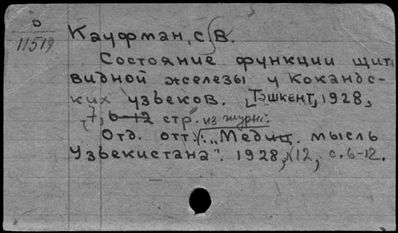 О
11519
Кауфман, С. В.
Состояние функции щит
видной железы у Кокандс-
ких узбеков. [Ташкент, 1928,
7, 6-12 стр. из журн.
Отд. отт.: „Медиц. мысль
Узбекистана". 1928, №12, с. 6-12.